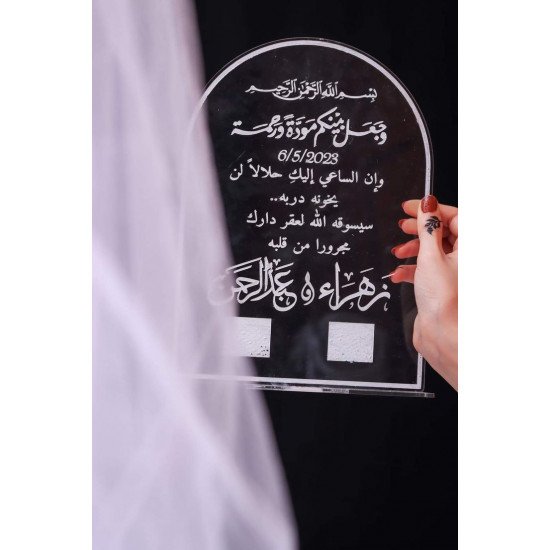 بسم الله الرحمن الرحيم
وجعل بينكم مودة ورحمة
6/5/2023
وإن الساعي إليكِ حلالاً لن
يخونه دربه..
سيسوقه الله لعقر دارك
مجرورا من قلبه
زهراء و عبدالرحمن